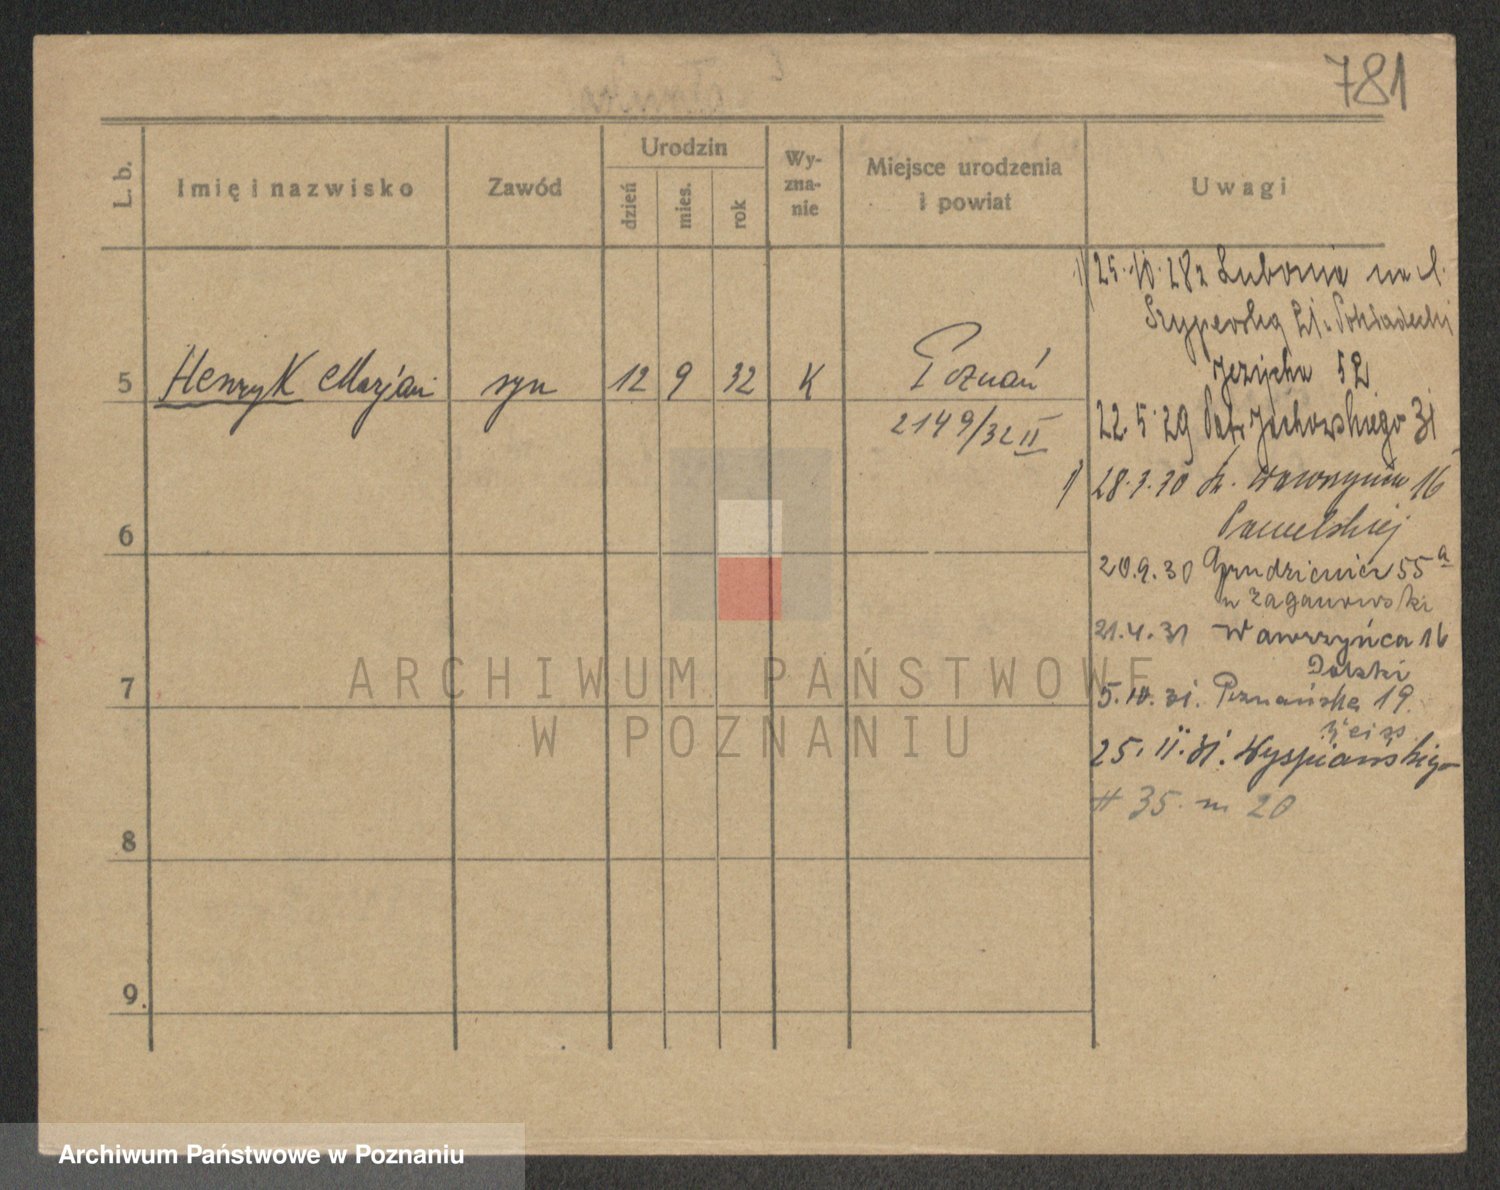 781
L. b.
Imię i nazwisko
Zawód
Urodzin
dzień
mies.
rok
Wy-
zna-
nie
Miejsce urodzenia
i powiat
Uwagi
5 Henryk Marjan syn 12 9 32 K Poznań
2149/32 II
6
7
8
9.
1) 25.10.28 z Lubonia na
52
22.5.29 31
1) 28.3.30 16
20.9.30 Grudzieniec 55a
Żaganowski
21.4.31 Wawrzyńca 16
Dolski
5.10.31. Poznańska 19.
Zeiss
25.II.31. Wyspiańskiego
# 35. m 20
ARCHIWUM PAŃSTWOWE
W POZNANIU
Archiwum Państwowe w Poznaniu